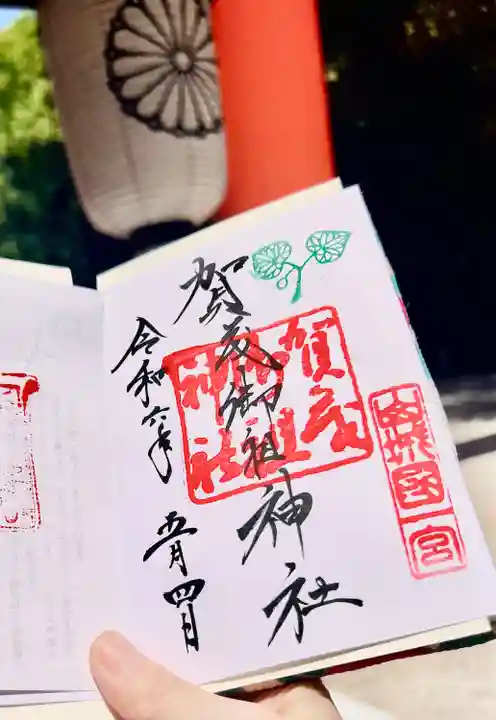 山城国一宮
賀茂御祖神社
賀茂御祖神社
令和六年
五月四日